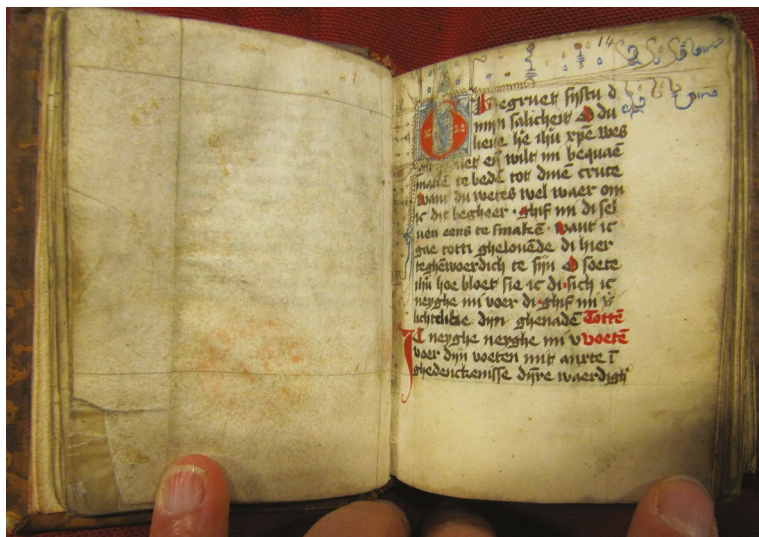 14
Begruet sijstu d
mijn salicheit O du
lieve h̄e ihū xp̄e wes
gegruet eñ wilt mi bequaē
maken te bedē tot dinē cruce
Want du wetes wel waer om
ic dit begheer · ghif mi di sel
uen eens te smakē · Want ic
gae totti ghelouēde di hier
teghēwoerdich te sijn O soete
ihū hoe bloet sie ic di · sich ic
neyghe mi voer di · ghif mi
lichtelike dijn ghenadē Tottē
IC neyghe neyghe mi v voetē
voer dijn voeten mit anxte ī
ghedenckenisse dijre waerdigh